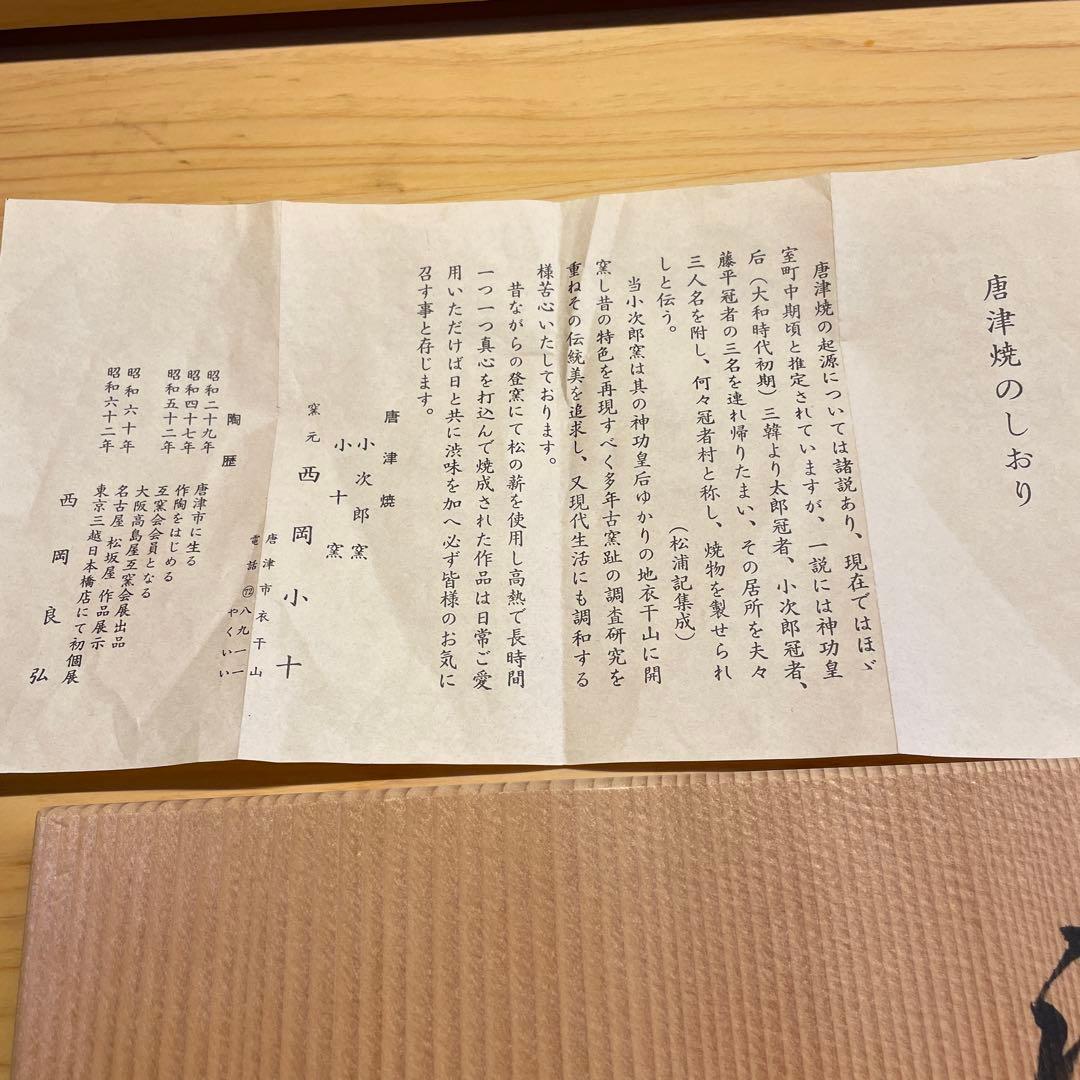 唐津焼のしおり
唐津焼の起源については諸説あり、現在ではほゞ
室町中期頃と推定されていますが、一説には神功皇
后（大和時代初期）三韓より太郎冠者、小次郎冠者、
藤平冠者の三名を連れ帰りたまい、その居所を夫々
三人名を附し、何々冠者村と称し、焼物を製せられ
しと伝う。
（松浦記集成）
当小次郎窯は其の神功皇后ゆかりの地衣干山に開
窯し昔の特色を再現すべく多年古窯趾の調査研究を
重ねその伝統美を追求し、又現代生活にも調和する
様苦心いたしております。
昔ながらの登窯にて松の薪を使用し高熱で長時間
一つ一つ真心を打込んで焼成された作品は日常ご愛
用いただけば日と共に渋味を加へ必ず皆様のお気に
召す事と存じます。
唐津焼
小次郎窯
小十窯
窯元 西岡小十
唐津市衣干山
電話 ㋆八九一一
やくいい
陶歴
昭和二十九年 唐津市に生る
昭和四十七年 作陶をはじめる
昭和五十二年 互窯会会員となる
大阪高島屋互窯会展出品
昭和六十年 名古屋 松坂屋 作品展示
昭和六十二年 東京三越日本橋店にて初個展
西岡良弘